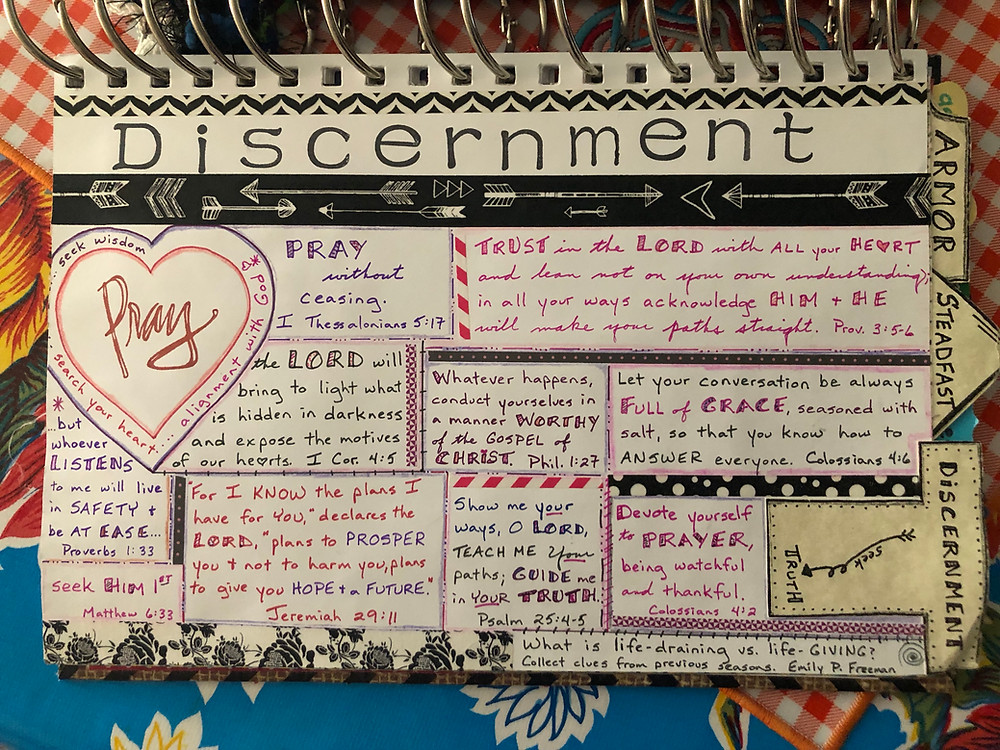 Discernment
...seek wisdom
alignment with God
search your heart...
Pray
PRAY
without
ceasing.
I Thessalonians 5:17
TRUST in the LORD with ALL your HEART
and lean not on your own understanding;
in all your ways acknowledge HIM + HE
will make your paths straight. Prov. 3:5-6
the LORD will
bring to light what
is hidden in darkness
and expose the motives
of our hearts. I Cor. 4:5
Whatever happens,
conduct yourselves in
a manner WORTHY
of the GOSPEL of
CHRIST. Phil. 1:27
Let your conversation be always
FULL of GRACE, seasoned with
salt, so that you know how to
ANSWER everyone. Colossians 4:6
...but
whoever
LISTENS
to me will live
in SAFETY +
be AT EASE...
Proverbs 1:33
seek HIM 1ST
Matthew 6:33
For I KNOW the plans I
have for YOU," declares the
LORD, "plans to PROSPER
you + not to harm you, plans
to give you HOPE + a FUTURE."
Jeremiah 29:11
Show me your
ways, O LORD,
TEACH ME your
paths; GUIDE me
in YOUR TRUTH.
Psalm 25:4-5
Devote yourself
to PRAYER,
being watchful
and thankful.
Colossians 4:2
seek
TRUTH
What is life-draining vs. life-GIVING?
Collect clues from previous seasons. Emily P. Freeman
ARMOR
STEADFAST
DISCERNMENT